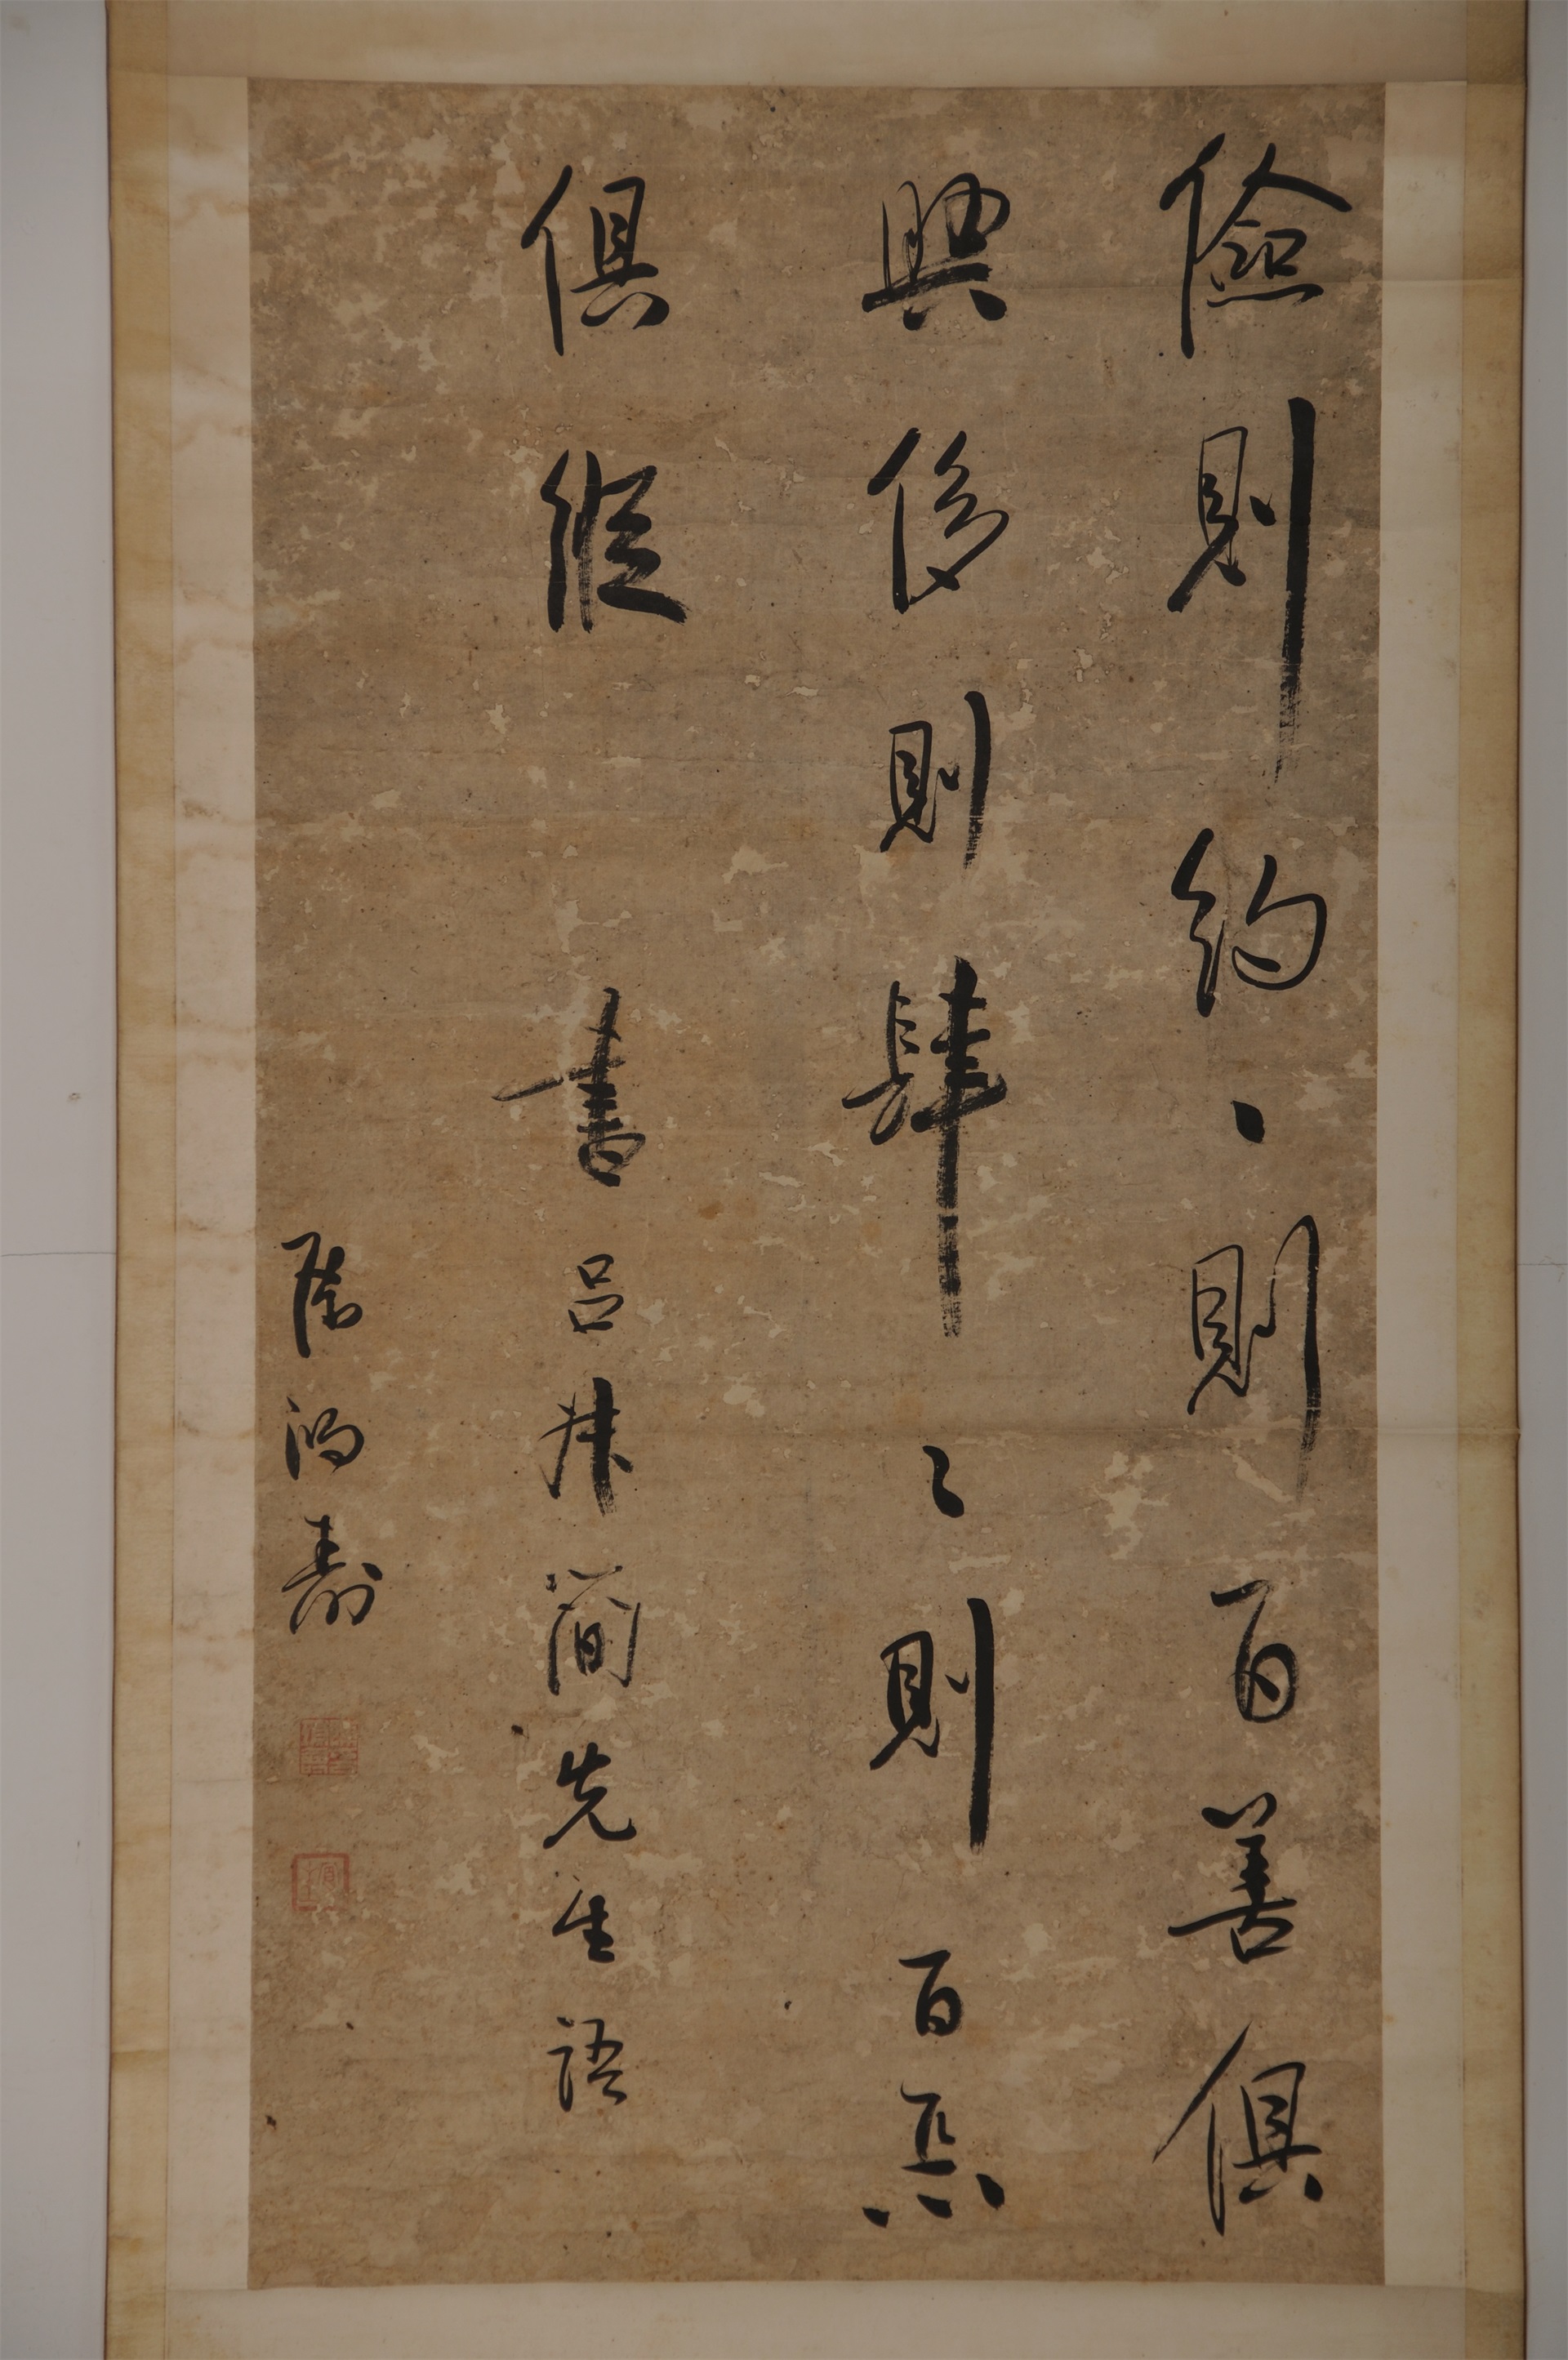 儉則約丶則百善俱
興侈則肆〻則百惡
俱縱 書呂叔簡先生語
陳鴻壽